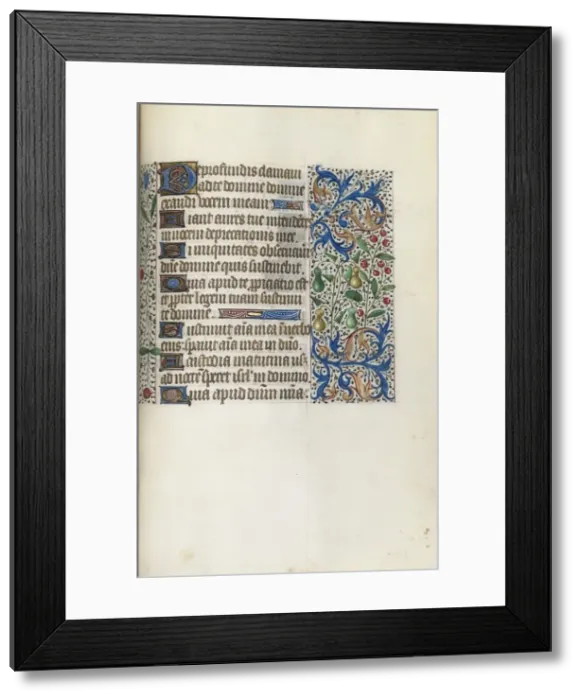 De profundis clamavi
ad te domine domine
exaudi vocem meam
Fiant aures tue intendētes
in vocem deprecationis mee.
Si iniquitates observaū
dñe domine quis sustinebit.
Quia apud te ꝓpiciatio est
et ꝓpter legem tuam sustinui
te domine.
Sustinuit aīa mea in verbo
eius speravit aīa mea in dño.
A custodia matutina usꝫ
ad noctē speret isrl' in domino.
Quia apud dñm mīa.